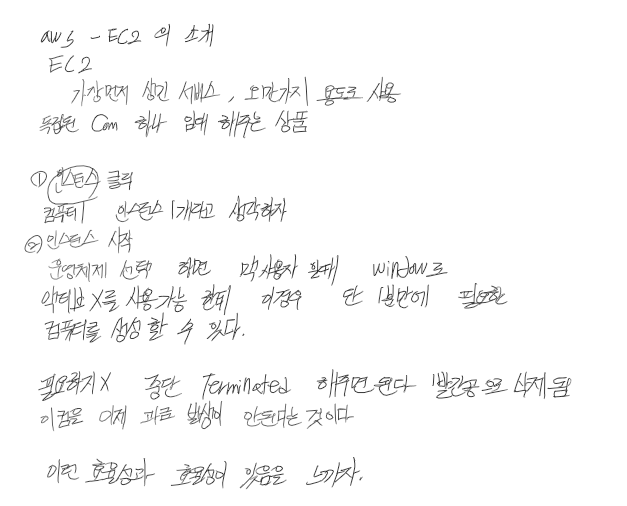 aws - EC2 의 소개
EC2
가장먼저 생긴 서비스, 오만가지 용도로 사용
독립된 Com 하나 임대 해주는 상품
① 인스턴스 클릭
컴퓨터1 인스턴스 1개라고 생각하자
② 인스턴스 시작
운영체제 선택 하면 맥사용자 할때 window로
액티브X를 사용가능 한데 이경우 단 1분만에 필요한
컴퓨터를 생성 할 수 있다.
필요하지X 중단 Terminated 해주면된다 빨간공으로 삭제됨
이컴은 이제 과료 발생이 안된다는 것이다
이런 효율성과 효율성이 있음을 느끼자.